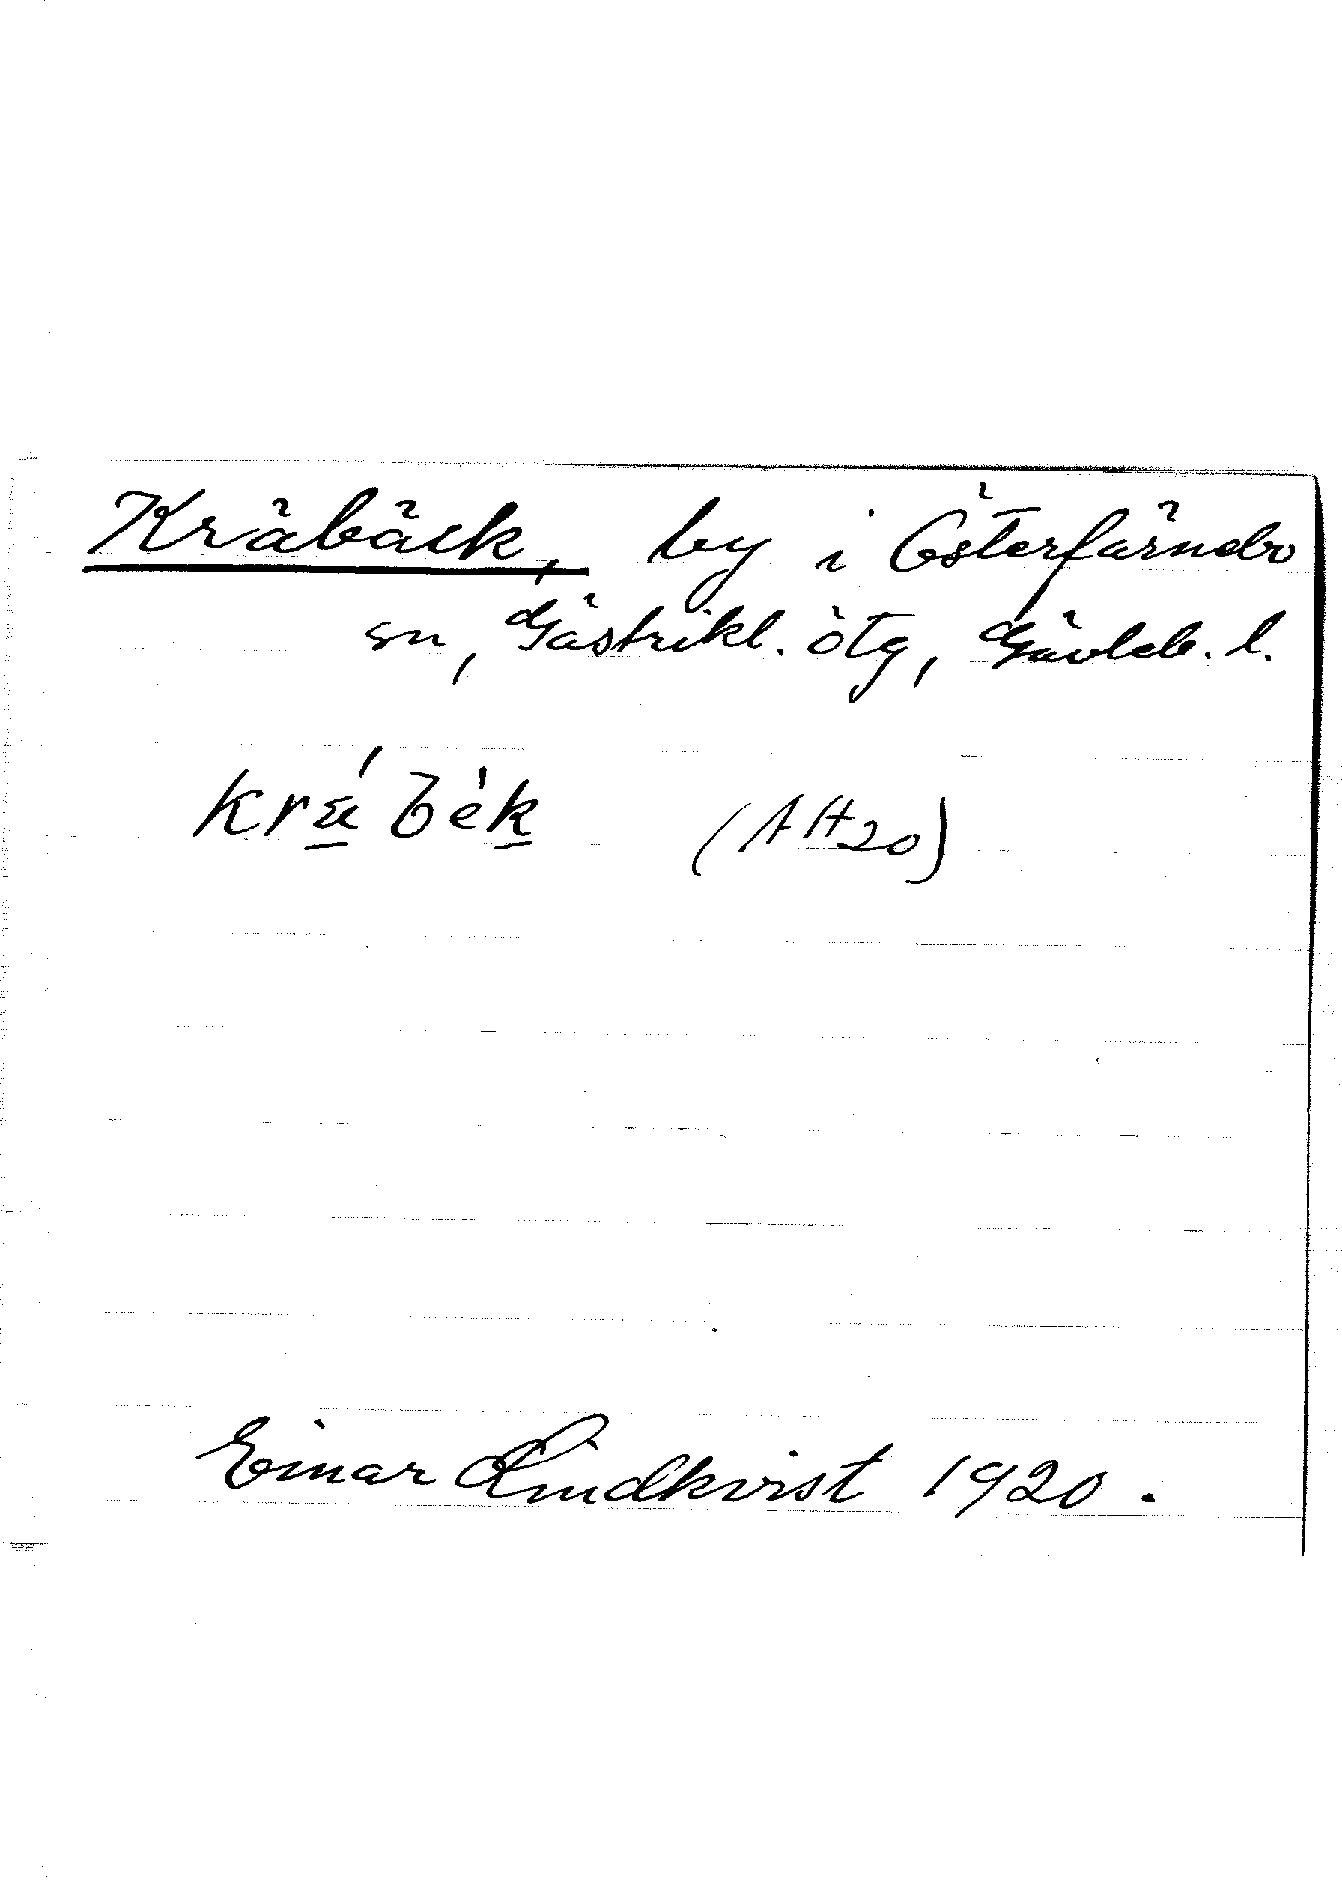 Kräbäck, by i Österfärnebo
sn, Gästrikl. ötg, Gävleb. l.
krǽ bèk (AH20)
Einar Lindkvist 1920.